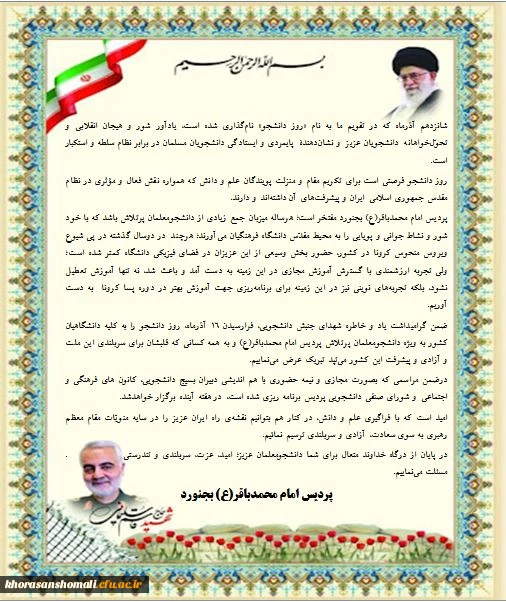 بسم الله الرحمن الرحیم
شانزدهم آذرماه که در تقویم ما به نام «روز دانشجو» نام‌گذاری شده است، یادآور شور و هیجان انقلابی و
تحول‌خواهانه دانشجویان عزیز و نشان‌دهندهٔ پایمردی و ایستادگی دانشجویان مسلمان در برابر نظام سلطه و استکبار
است.
روز دانشجو فرصتی است برای تکریم مقام و منزلت پویندگان علم و دانش که همواره نقش فعال و مؤثری در نظام
مقدس جمهوری اسلامی ایران و پیشرفت‌های آن داشته‌اند و دارند.
پردیس امام محمدباقر(ع) بجنورد مفتخر است؛ هرساله میزبان جمع زیادی از دانشجومعلمان پرتلاش باشد که با خود
شور و نشاط جوانی و پویایی را به محیط مقدّس دانشگاه فرهنگیان می آورند؛ هرچند در دوسال گذشته در پی شیوع
ویروس منحوس کرونا در کشور، حضور بخش وسیعی از این عزیزان در فضای فیزیکی دانشگاه کمتر شده است؛
ولی تجربه ارزشمندی با گسترش آموزش مجازی در این زمینه به دست آمد و باعث شد، نه تنها آموزش تعطیل
نشود، بلکه تجربه‌های نوینی نیز در این زمینه برای برنامه‌ریزی جهت آموزش بهتر در دوره پسا کرونا به دست
آوریم.
ضمن گرامیداشت یاد و خاطره شهدای جنبش دانشجویی، فرارسیدن ۱۶ آذرماه، روز دانشجو را به کلیه دانشگاهیان
کشور به ویژه دانشجومعلمان پرتلاش پردیس امام محمدباقر(ع) و به همه کسانی که قلبشان برای سربلندی این ملت
و آزادی و پیشرفت این کشور می‌تپد تبریک عرض می‌نماییم.
درضمن مراسمی که بصورت مجازی و نیمه حضوری با هم اندیشی دبیران بسیج دانشجویی، کانون های فرهنگی و
اجتماعی و شورای صنفی دانشجویی پردیس برنامه ریزی شده است، در هفته آینده برگزار خواهدشد.
امید است که با فراگیری علم و دانش، در کنار هم بتوانیم نقشه‌ی راه ایران عزیز را در سایه منویّات مقام معظم
رهبری به سوی سعادت، آزادی و سربلندی ترسیم نمائیم.
در پایان از درگاه خداوند متعال برای شما دانشجومعلمان عزیز؛ امید، عزت، سربلندی و تندرستی .
مسئلت می‌نماییم.
پردیس امام محمدباقر(ع) بجنورد
شهید حاج قاسم سلیمانی
khorasanshomali.cfu.ac.ir